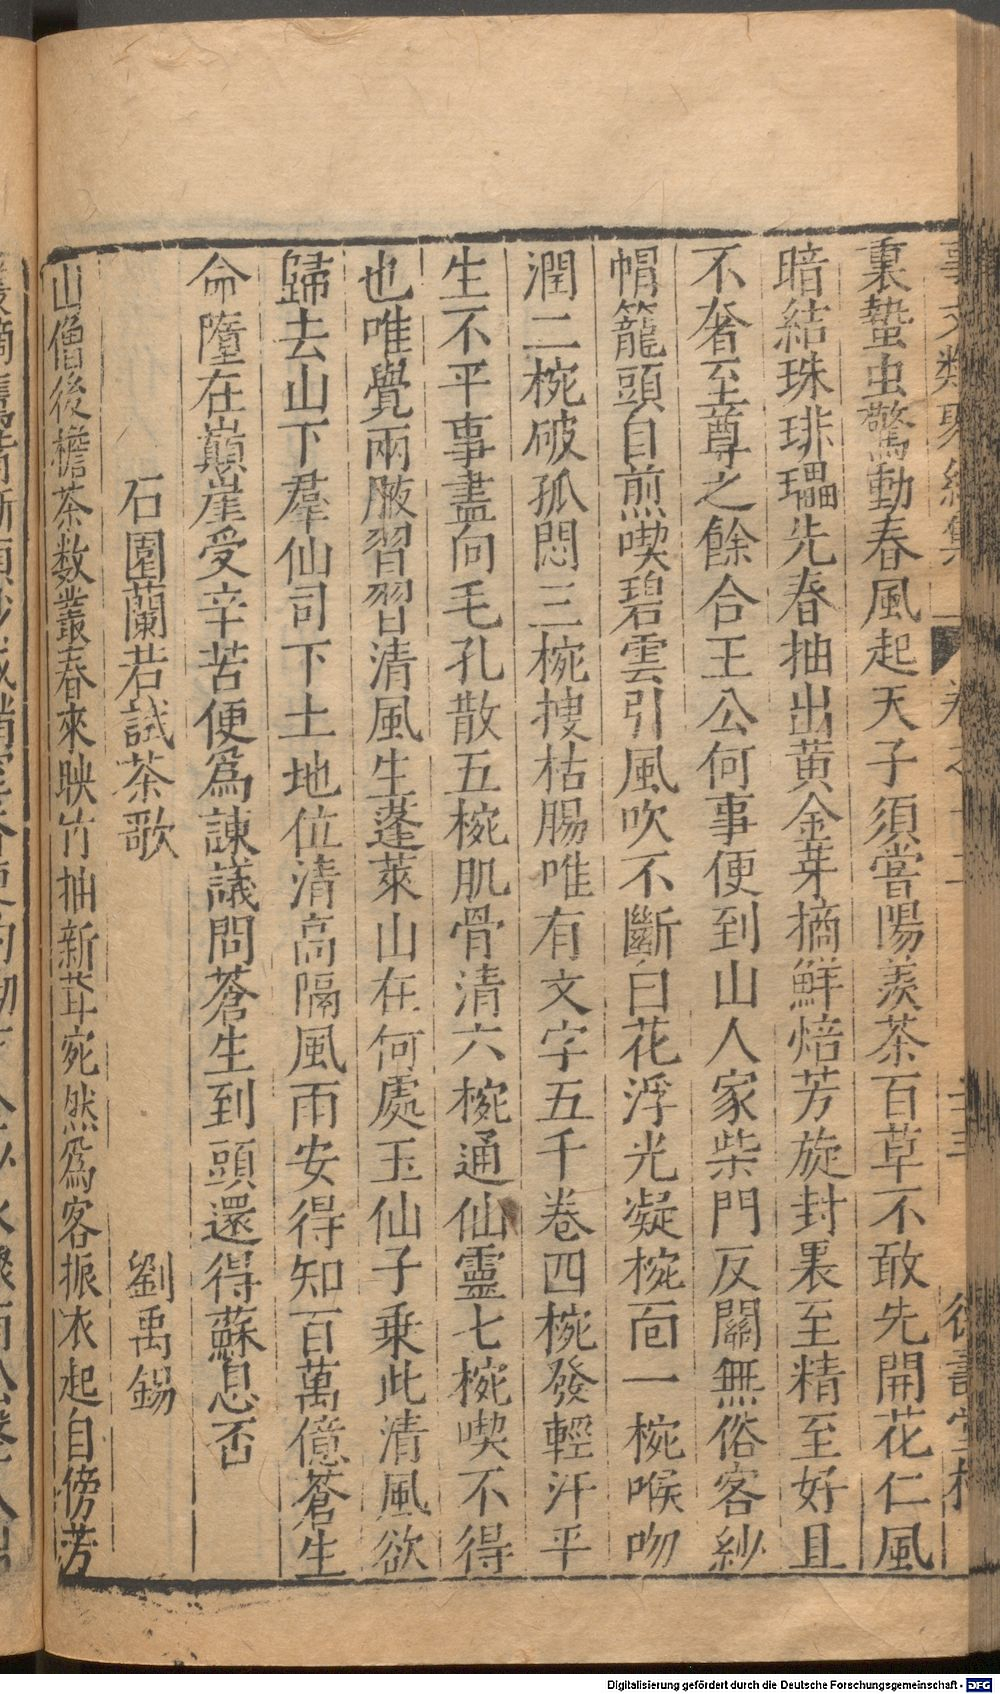 事文類聚續集 卷之十二 德壽堂梓
裏蟄虫驚動春風起天子須嘗陽羨茶百草不敢先開花仁風
暗結珠琲瓃先春抽出黄金芽摘鮮焙芳旋封裹至精至好且
不奢至尊之餘合王公何事便到山人家柴門反關無俗客紗
帽籠頭自煎喫碧雲引風吹不斷白花浮光凝椀面一椀喉吻
潤二椀破孤悶三椀搜枯腸唯有文字五千卷四椀發輕汗平
生不平事盡向毛孔散五椀肌骨清六椀通仙靈七椀喫不得
也唯覺兩腋習習清風生蓬萊山在何處玉仙子乗此清風欲
歸去山下羣仙司下土地位清高隔風雨安得知百萬億蒼生
命墮在巔崖受辛苦便爲諫議問蒼生到頭還得蘇息否
石園蘭若試茶歌 劉禹錫
山僧後檐茶数叢春來映竹抽新茸宛然爲客振衣起自傍芳
Digitalisierung gefördert durch die Deutsche Forschungsgemeinschaft - DFG